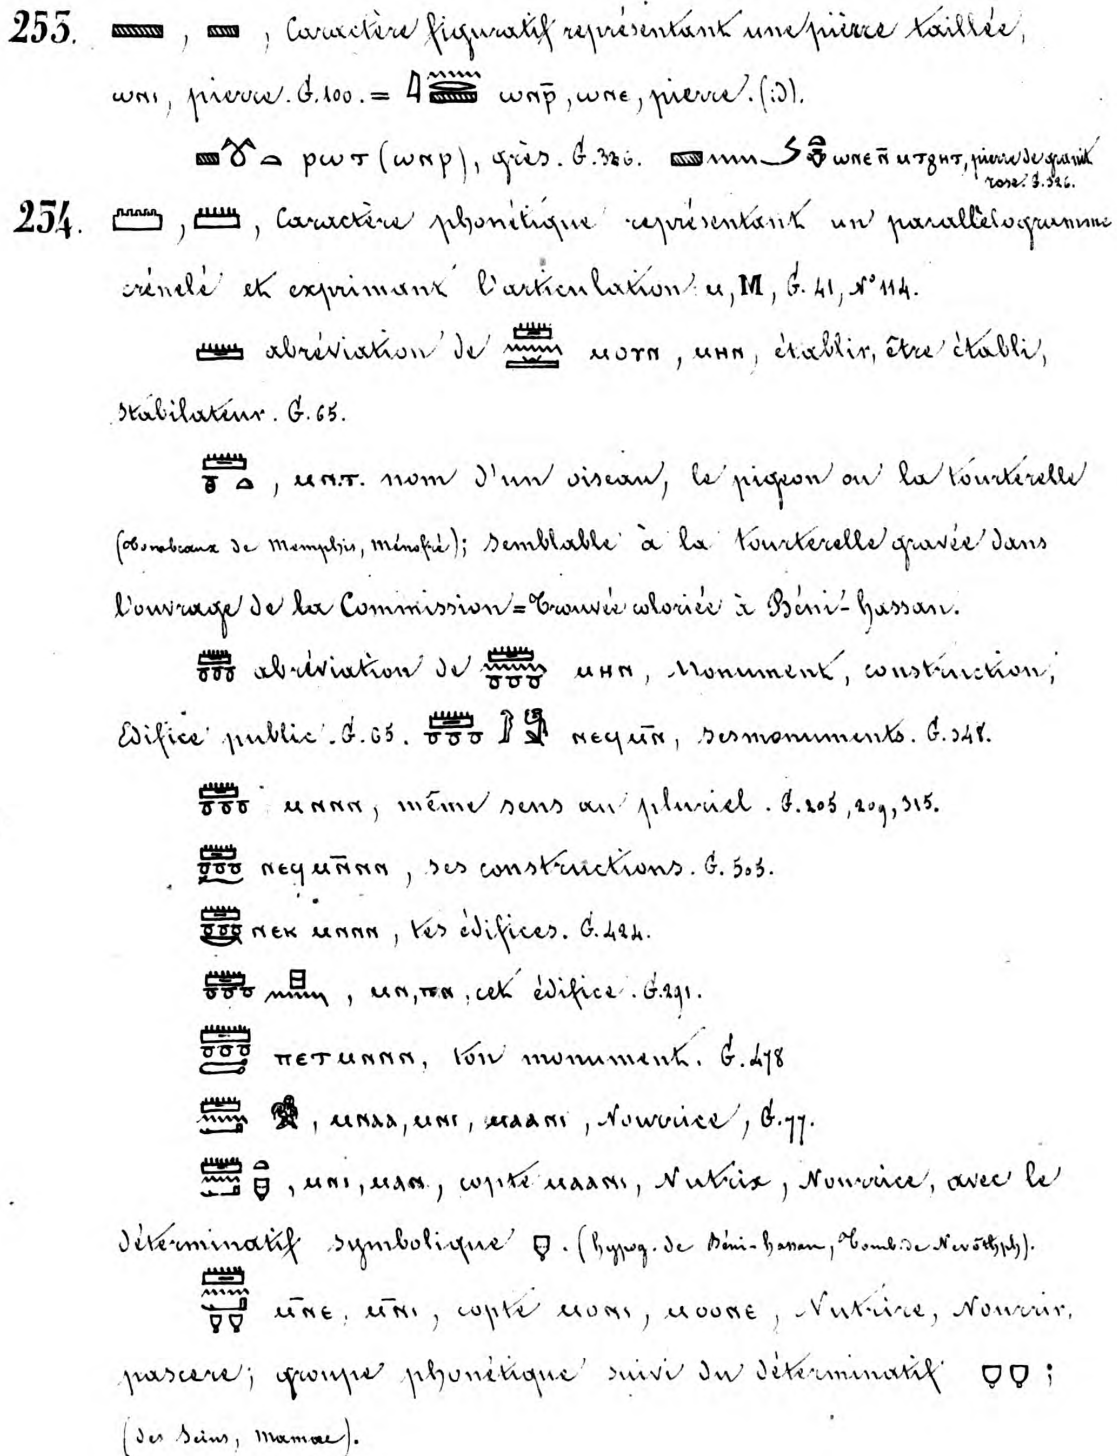 253. 𓈇, 𓈇, Caractère figuratif représentant une pierre taillée,
ⲱⲛⲓ, pierre. G. 100. = ⲱⲛⲣ̄, ⲱⲛⲉ, pierre. (id).
ⲣⲱⲧ (ⲱⲛⲣ), grès. G. 326. ⲱⲛⲉ ⲛ̄ ⲙⲧϩⲏⲧ, pierre de granit
rose. G. 326.
254. , , Caractère phonétique représentant un parallèlogramme
crénelé et exprimant l'articulation ⲙ, M, G. 41, N° 114.
𓏠 abréviation de 𓏠𓈖 ⲙⲟⲩⲛ, ⲙⲏⲛ, établir, être établi,
stabilateur. G. 65.
𓏠𓏌𓏏, ⲙⲛ.ⲧ. nom d'un oiseau, le pigeon ou la tourterelle
(tombeaux de Memphis, Ménofré); semblable à la tourterelle gravée dans
l'ouvrage de la Commission = Trouvée coloriée à Béni-hassan.
𓏠𓏌𓏌𓏌 abréviation de 𓏠𓈖𓏌𓏌𓏌 ⲙⲏⲛ, Monument, construction,
Edifice public. G. 65. 𓏠𓏌𓏌𓏌 ⲛⲉϥⲙⲛ̄, ses monuments. G. 348.
𓏠𓏌𓏌𓏌 ⲙⲛⲛⲛ, même sens au pluriel. G. 205, 209, 315.
𓏠𓏌𓏌𓏌𓆑 ⲛⲉϥⲙⲛ̄ⲛⲛ, ses constructions. G. 505.
𓏠𓏌𓏌𓏌𓎡 ⲛⲉⲕ ⲙⲛⲛⲛ, tes édifices. G. 424.
𓏠𓏌𓏌𓏌 𓊪𓈖, ⲙⲛ, ⲡⲛ, cet édifice. G. 291.
𓏠𓏌𓏌𓏌𓍿 ⲡⲉⲧⲙⲛⲛⲛ, ton monument. G. 478
𓏠𓈖𓂝, ⲙⲛⲁⲁ, ⲙⲛⲓ, ⲙⲁⲁⲛⲓ, Nourrice, G. 77.
𓏠𓈖𓂝𓏏, ⲙⲛⲓ, ⲙⲁⲛ, copte ⲙⲁⲁⲛⲓ, Nutrix, Nourrice, avec le
déterminatif symbolique . (hypog. de Béni-hassan, Tomb. de Nevôthph).
𓏠𓈖𓂝 ⲙ̄ⲛⲉ, ⲙ̄ⲛⲓ, copte ⲙⲟⲛⲓ, ⲙⲟⲟⲛⲉ, Nutrire, Nourrir,
pascere; groupe phonétique suivi du déterminatif ;
(des Seins, mamae).